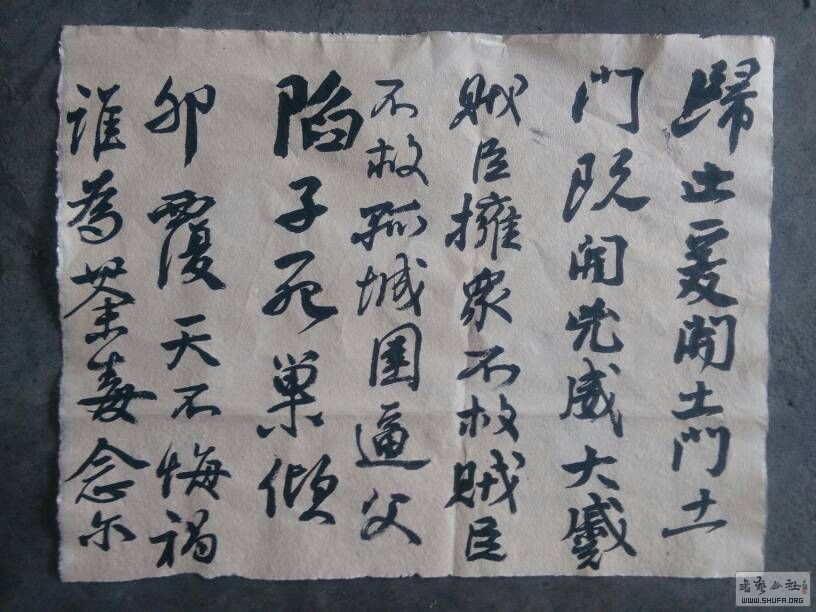 歸止爰開土門土
門既開兇威大蹙
賊臣擁衆不救賊臣
不救孤城圍逼父
陷子死巢傾
卵覆天不悔禍
誰為荼毒念尔
書藝公社
WWW.SHUFA.ORG